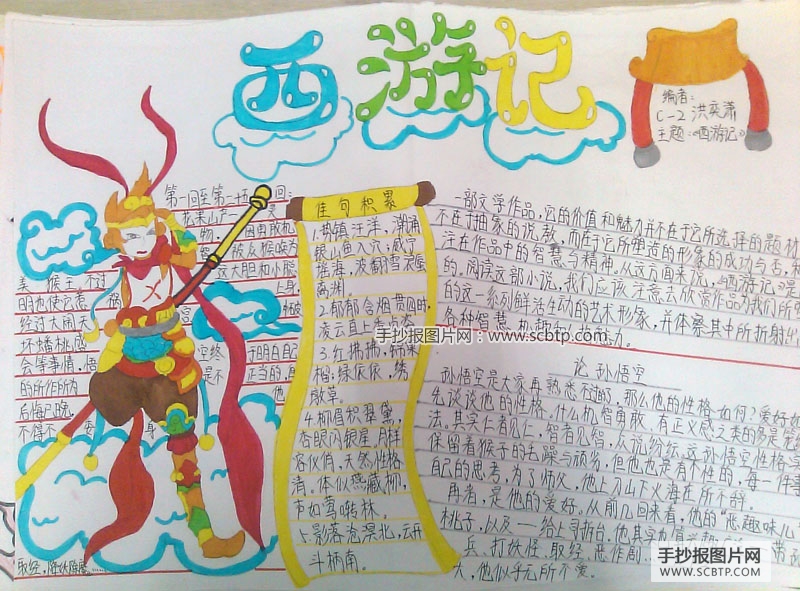 西游记
编者:
C-2 洪奕潇
主题:《西游记》
第一回至第一
回:
花果山产一
灵
物,
因勇敢机
被众猴唤为
美
猴王,不过
这大胆和小聪
明也使它惹
祸
上身,
经过大闹天
宫
坏蟠桃盛
会等事情,悟
空终
于明白自己
的所作所为
是不
正当的,再
后悔已晚,
他
不得不
委
身
取经,降妖除魔……
佳句积累
1.势镇汪洋,潮涌
银山鱼入穴;威宁
摇海,波翻雪浪蜃
离渊
2.郁郁含烟贯四时,
凌云直上
3.红拂拂,锦巢
榴;绿依依,绣
墩草。
4.柳眉积翠黛,
杏眼闪银星。月样
容仪俏,天然性格
清。体似燕藏柳,
声如莺啭林。
5.影落沧溟北,云开
斗柄南。
一部文学作品,它的价值和魅力并不在于它所选择的题材,
不在抽象的说教,而在于它所塑造的形象的成功与否,和
注在作品中的智慧与精神。从这方面来说,《西游记》是
的。阅读这部小说,我们应该注意去欣赏作品为我们所
的这一系列鲜活生动的艺术形象,并体察其中所折射出
各种智慧
力。
论 孙悟空
孙悟空是大家再熟悉不过的,那么他的性格如何?爱好如
先谈谈他的性格。什么机智勇敢,有正义感之类的多是
法。其实仁者见仁,智者见智,众说纷纭。这孙悟空性格
保留着猴子的毛躁与顽劣,但他也是有个性的,每一件事
自己的思考,为了师父,他上刀山下火海在所不辞。
再者,是他的爱好。从前几回来看,他的“恶趣味儿
桃子,以及——给上司拆台。他其实
兵、打妖怪、取经、恶作剧……
大,他似乎无所不爱。
手抄报图片网:www.scbtp.com
手抄报图片网
WWW.SCBTP.COM